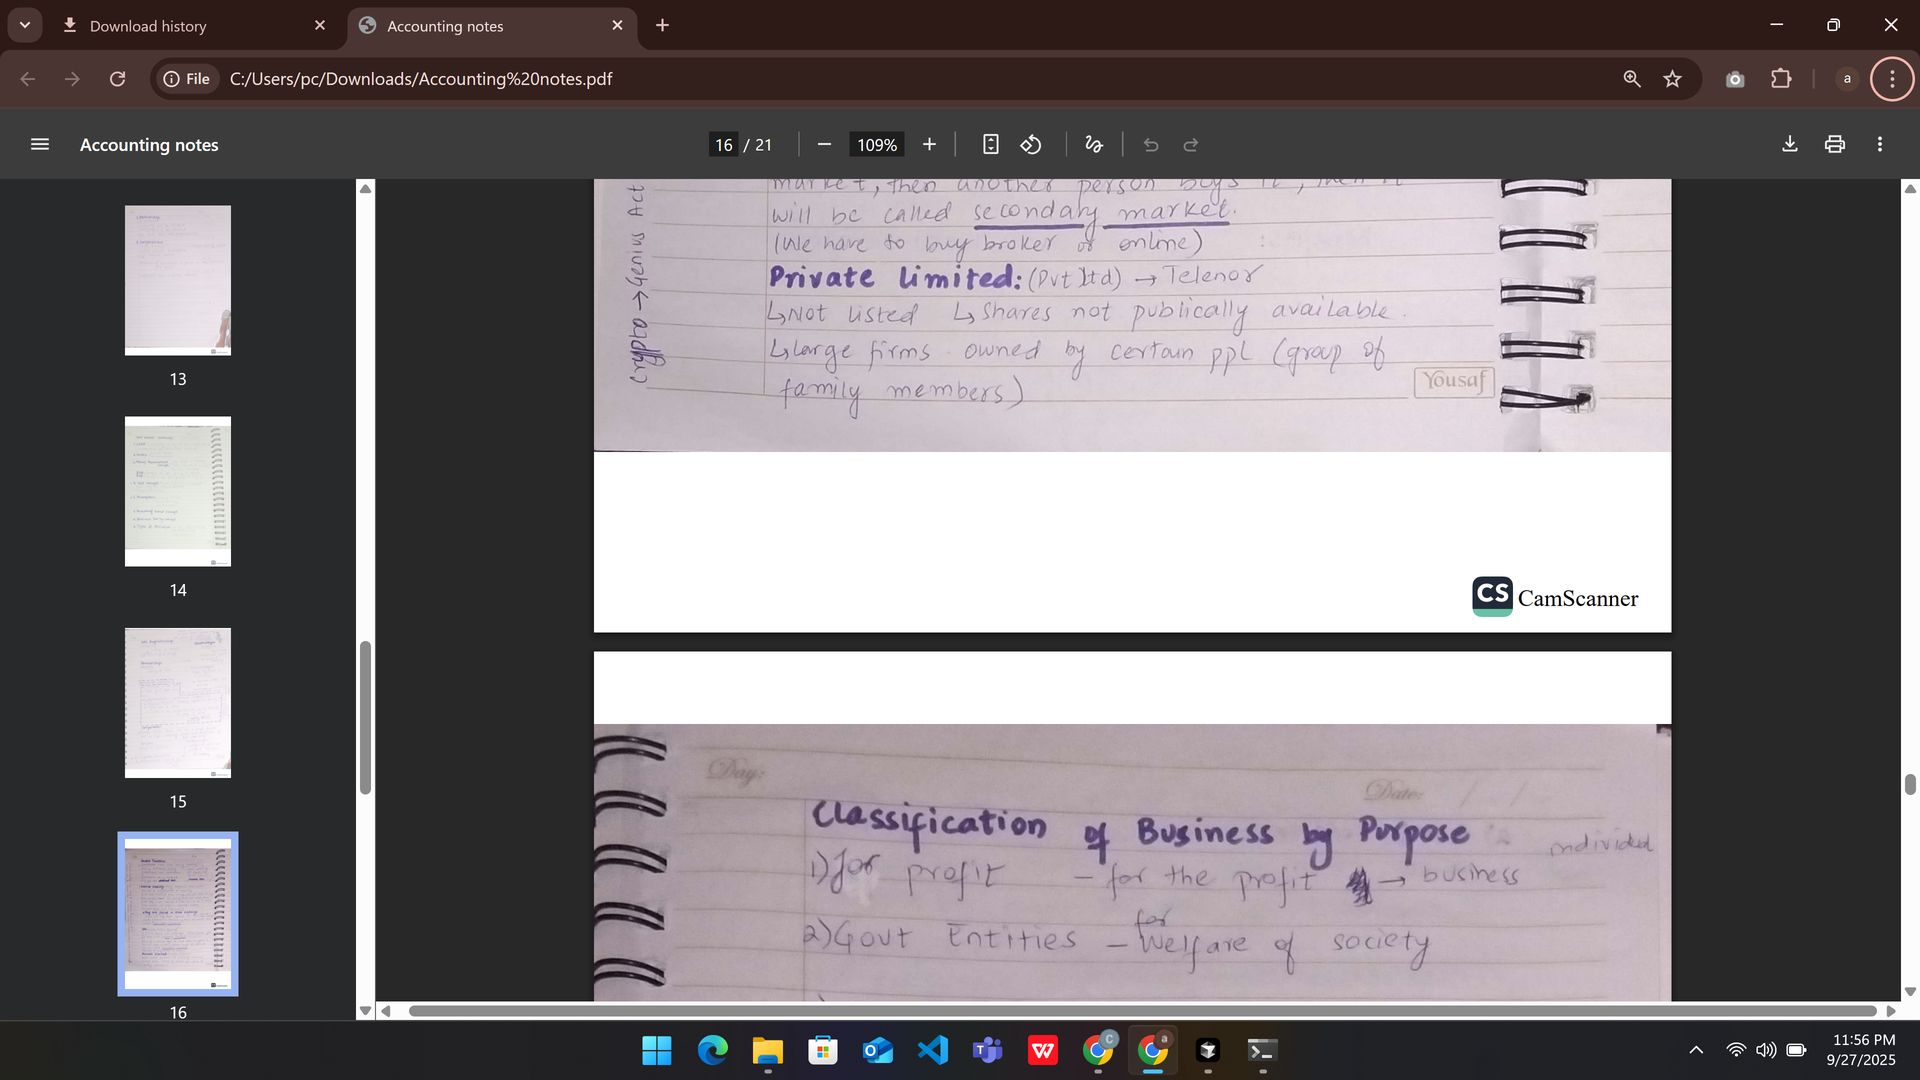 Download history
Accounting notes
File
C:/Users/pc/Downloads/Accounting%20notes.pdf
a
Accounting notes
16 / 21
109%
13
14
15
16
market, then another person buys it, then it
will be called secondary market.
(We have to buy broker or online)
Private limited: (Pvt ltd) → Telenor
↳ Not listed ↳ Shares not publically available.
↳ large firms owned by certain ppl (group of
family members)
crypto → Genius Act
Yousaf
CS CamScanner
Day:
Date: / /
Classification of Business by Purpose
individual
1) for profit – for the profit → business
for
2) Govt Entities – Welfare of society
C
a
11:56 PM
9/27/2025